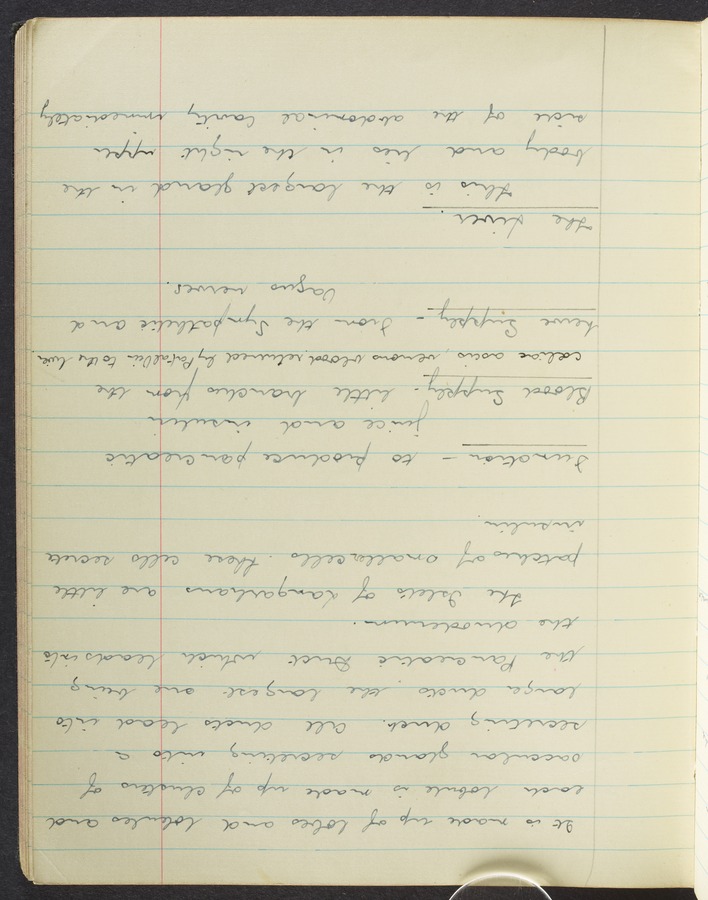 It is made up of lobes and lobules and
each lobule is made up of clusters of
saccular glands secreting into a
secreting duct. All ducts lead into
larger ducts, the largest one being
the Pancreatic Duct which leads into
the duodenum.
The Islets of Langerhans are little
patches of smaller cells. these cells secrete
insulin.
Function - to produce pancreatic
juice and insulin
Blood Supply - little branches from the
coeliac axis, venous blood returned by Portal Vein to the liver.
Nerve Supply - From the Sympathetic and
Vagus nerves.
The Liver.
This is the largest gland in the
body and lies in the right upper
side of the abdominal cavity immediately